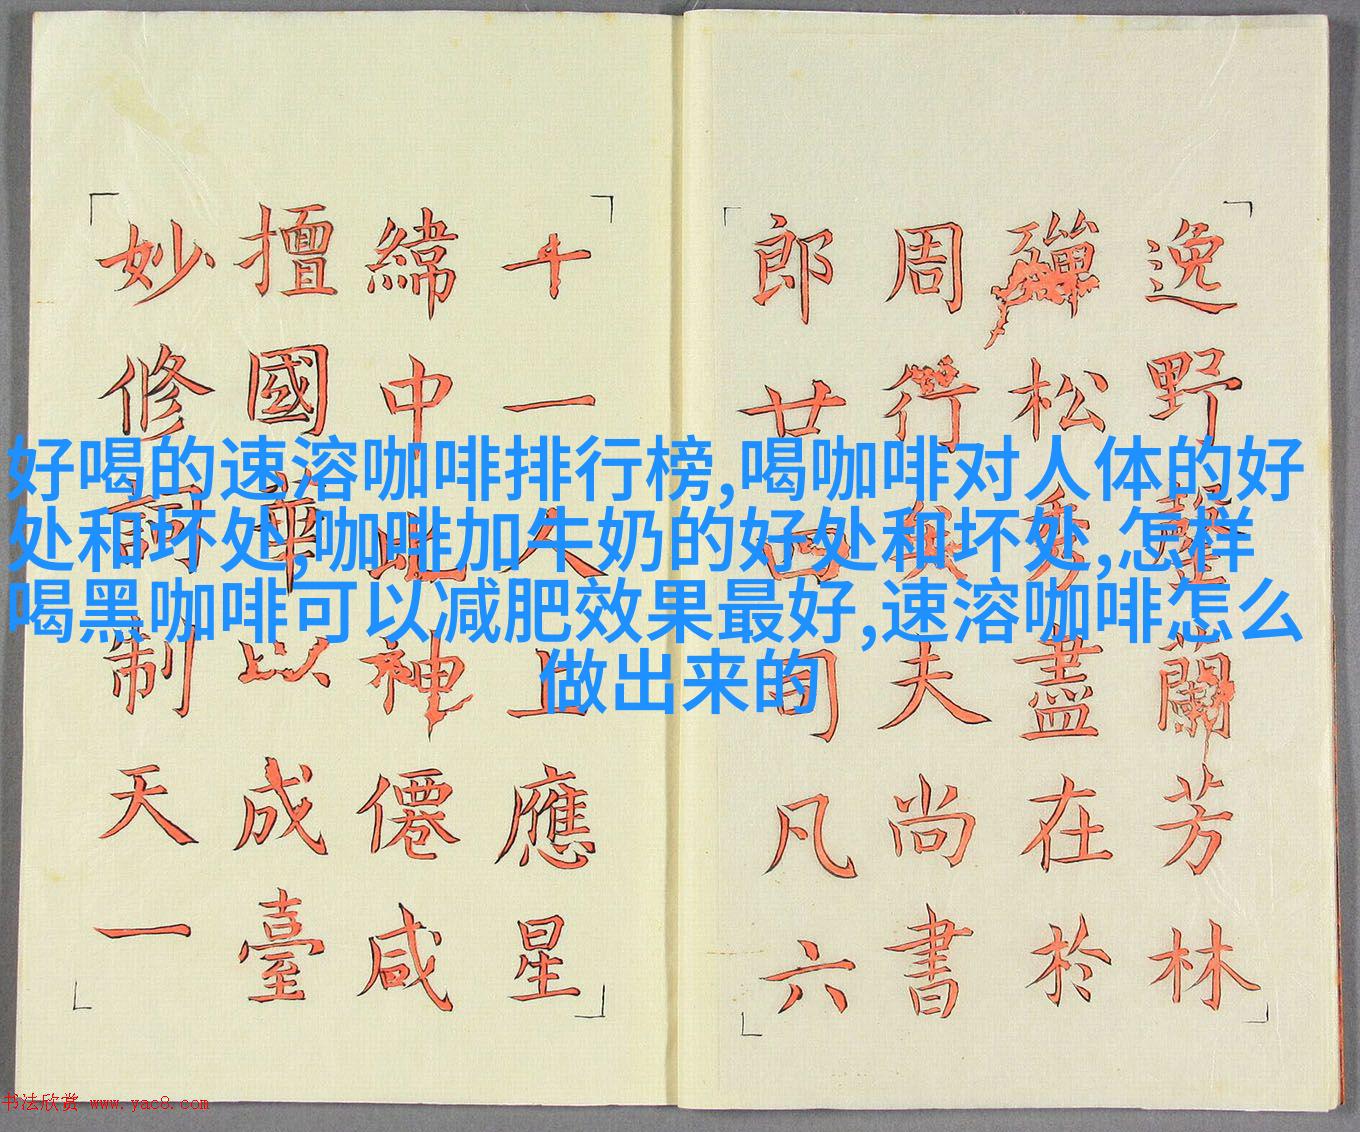 好喝的速溶咖啡排行榜,喝咖啡对人体的好
处和坏处,咖啡加牛奶的好处和坏处,怎样
喝黑咖啡可以减肥效果最好,速溶咖啡怎么
做出来的
逸野蘭芳林
殫松秀盡在於
周行矣夫尚書
郎廿四司凡六
十一人上應星
緯中比神僊咸
擅國華以成臺
妙修詞制天一
书法欣赏 www.yac8.com